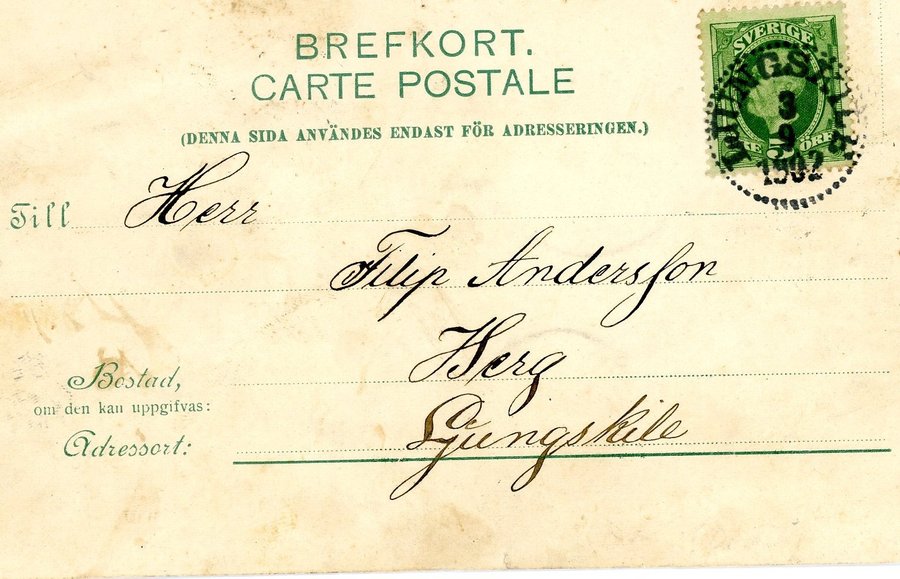 BREFKORT.
CARTE POSTALE
(DENNA SIDA ANVÄNDES ENDAST FÖR ADRESSERINGEN.)
SVERIGE
5 ÖRE
LJUNGSKILE
3
9
1902
Till Herr
Filip Andersson
Berg
Bostad,
om den kan uppgifvas:
Adressort: Ljungskile